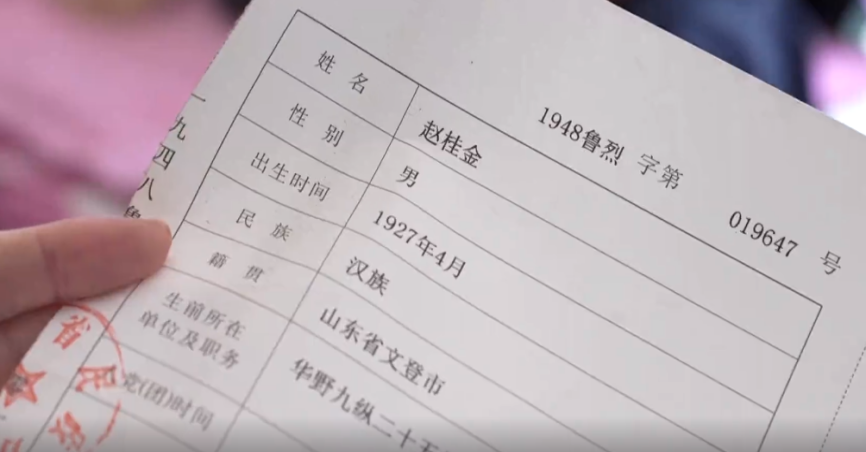 1948鲁烈 字第 019647 号
姓名 赵桂金
性别 男
出生时间 1927年4月
民族 汉族
籍贯 山东省文登市
生前所在单位及职务 华野九纵二十五
党(团)时间
一九四八鲁
省民政